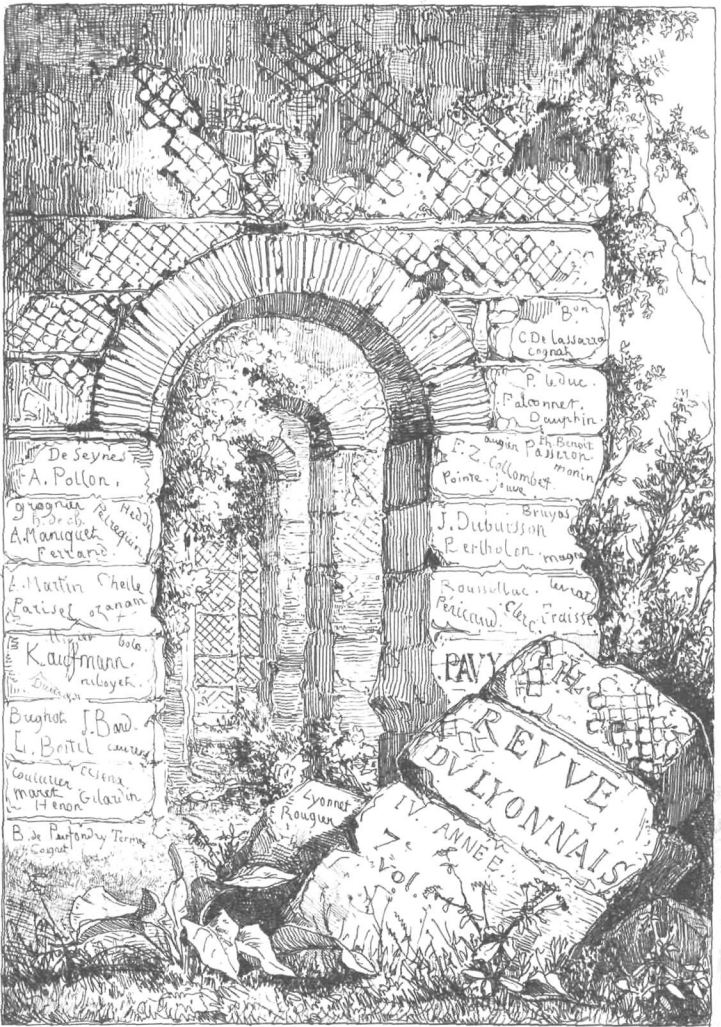 Bon
C. De Lassarra
Cognat
P. Leduc.
Falconnet
Dauphin.
Ph. Benoit
augier Passeron
F. Z. Collombet
monin
Pointe. Jouve
Bruyas
J. Dubuisson
Bertholon. magne
Roussillac.
Péricaud. Clerc. Fraisse
PAVY
De Seynes
A. Pollon.
grognier Hedde
Petrequin
A. Maniquet
Ferrand
Martin Cheile
Parisel ozanam
bolo
Kauffmann.
niboyet
Bughot J. Bard.
L. Boitel
Couturier
maret Gilardin
Henon
B. de Terme
Coignet
Lyonnet
Rougier
REVVE
DV LYONNAIS
IV ANNÉE
7e
Vol.